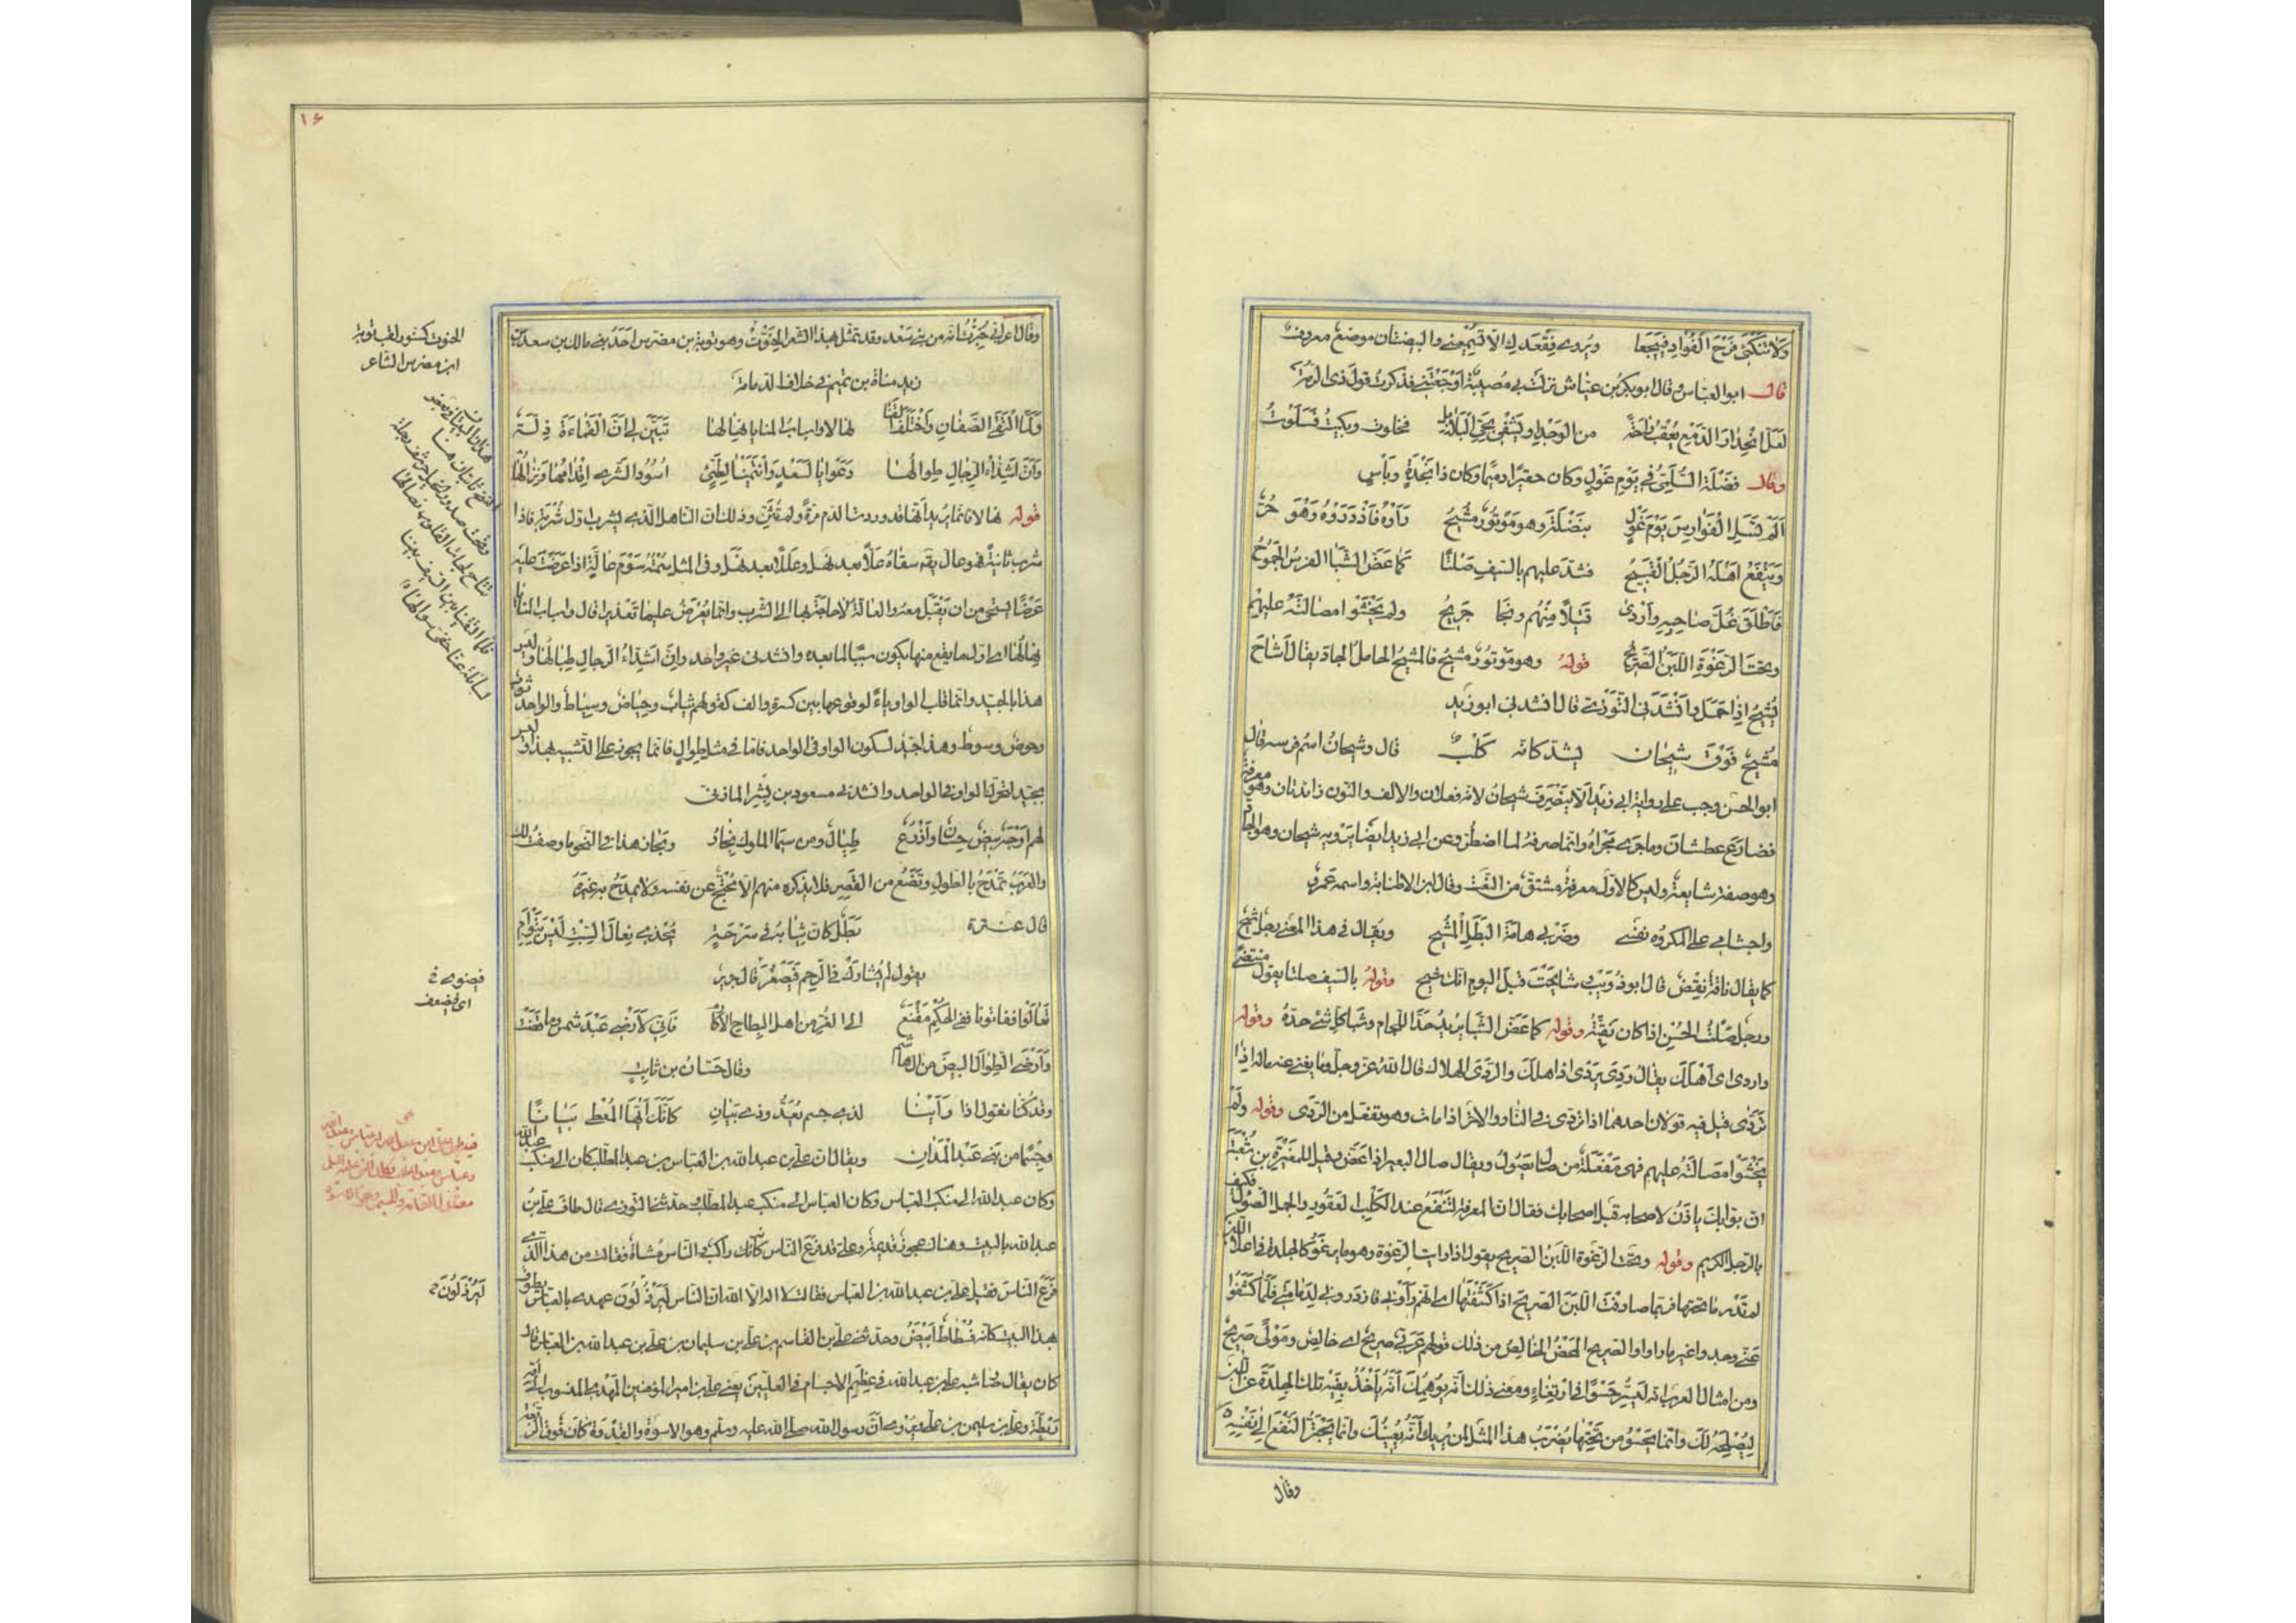 ولا تنكئى قرح الفؤاد فييجعا ويروى فقعدك الا تسمعينى والبيضتان موضع معروف
قال ابو العباس وقال ابو بكر بن عياش نزلت بى مصيبة اوجعتنى فذكرت قول ذى الرمة
لعل انحدار الدمع يعقب راحة من الوجد او يشفى نجى البلابل فخلوت وبكيت فسلوت
وقال فضلة السلمى فى يوم غول وكان حقيرا دميما وكان ذا نجدة وبأس
الم تسل الفوارس يوم غول بنضلة وهو موتور مشيح رأوه فازدروه وهو حر
وينفع اهله الرجل القبيح فشد عليهم بالسيف صلتا كما عض الشبا الفرس الجموح
فاطلق غل صاحبه واردى قتيلا منهم ونجا جريح ولم يخشوا مصالته عليهم
وتحت الرغوة اللبن الصريح قوله وهو موتور مشيح فالمشيح الحامل الجاد يقال اشاح
يشيح اذا حمل وانشدنى التوزى قال انشدنى ابو زيد
مشيح فوق شيحان يشد كانه كلب قال وشيحان اسم فرسه قال
ابو الحسن وجب على رواية ابى زيد الا ينصرف شيحان لانه فعلان والالف والنون زائدتان وهو معرفة
فضارع عطشان وما جرى مجراه وانما صرفه لما اضطر وعن ابى زيد ايضا يرويه شيحان وهو الجاد
وهو صفة شايعة وليس كالاول معرفة مشتق من النعت وقال ابن الاطنابة واسمه عمرو
واجشامى على المكروه نفسى وضربى هامة البطل المشيح ويقال فى هذا المعنى رجل شيح
كما يقال ناقة نقض قال ابو ذؤيب شايحت قبل اليوم انك شيح وقوله بالسيف صلتا يقول منتضى
ورجل صلت الجبين اذا كان نقيه وقوله كما عض الشبا يريد حد اللجام وشبا كل شئ حده وقوله
واردى اى اهلك يقال ردى يردى اذا هلك والردى الهلاك قال الله عز وجل وما يغنى عنه ماله اذا
تردى قيل فيه قولان احدهما اذا تردى فى النار والاخر اذا مات وهو تفعل من الردى وقوله ولم
يخشوا مصالته عليهم فهى مفعلة من صال يصول ويقال صال البعير اذا عض وقيل للمغيرة بن شعبة
ان بوابك ياذن لاصحابه قبل اصحابك فقال ان المعرفة لتنفع عند الكلب العقور والجمل الصؤل فكيف
بالرجل الكريم وقوله وتحت الرغوة اللبن الصريح يقول اذا رايت الرغوة وهو ما يرغو كالجلدة فى اعلى اللبن
لم تدر ما تحتها فربما صادفت اللبن الصريح اذا كشفتها اى انهم رأونى فازدرونى لدمامتى فلما كشفوا
عنى وجدوا غير ما راوا والصريح المحض الخالص من ذلك قولهم عربى صريح اى خالص ومولى صريح
ومن امثال العرب انه ليسر حسوا فى ارتغاء ومعنى ذلك انه يوهمك انه ياخذ بفيه تلك الجلدة عن اللبن
ليصلحه لك وانما يحسو من تحتها يضرب هذا المثل لمن يريك انه يعينك وانما يجتر النفع الى نفسه
وقال
١٦
وقال اعرابى خبرت انه من بنى سعد وقد تمثل بهذا الشعر الخنوت وهو توبة بن مضرس احد بنى مالك بن سعد بن
زيد مناة بن تميم فى خلاف الدمامة
ولما التقى الصفان واختلف القنا نهالا واسباب المنايا نهالها تبين لى ان القماءة ذلة
وان اشداء الرجال طوالها دعوا يا لسعد وانتمينا لطيئ اسود الشرى اقدامها ونزالها
قوله نهالا فانما يريد انها قد وردت الدم مرة ولم تثن وذلك ان الناهل الذى يشرب اول شربة فاذا
شرب ثانية فهو عال يقه سقاه عللا بعد نهل وعلا بعد نهل وفى المثل سمته سوم عالة اذا عرضت عليه
عرضا يستحى من ان يقبل معه والعالة لا حاجة بها الى الشرب وانما يعرض عليها تعذيرا قال واسباب المنايا
نهالها اى اول ما يقع منها يكون سببا لما بعده وانشدنى غير واحد وان اشداء الرجال طيالها وليس
هذا بالجيد وانما قلب الواو ياء لوقوعها بين كسرة والف كقولهم ثياب وحياض وسياط والواحد ثوب
وحوض وسوط وهذا جيد لسكون الواو فى الواحد فاما فى مثل طوال فانما يجوز على التشبيه بهذا وليس
بجيد لتحرك الواو فى الواحد وانشدنى مسعود بن بشر المازنى
لهم اوجه بيض حسان واذرع طيال ومن سيما الملوك نجار ومجاز هذا فى النحو ما وصفت لك
والعرب تمدح بالطول وتضع من القصر فلا يذكره منهم الا محتج عن نفسه ولا يمدح به غيره
قال عنترة بطل كان ثيابه فى سرحة يحذى نعال السبت ليس بتوام
يقول لم يشارك فى الرحم فيصغر وقال جرير
تعالوا ففاتونا ففى الحكم مقنع الى الغر من اهل البطاح الاكارم فانى لارضى عبد شمس وما قضت
وارضى الطوال البيض من ال هاشم وقال حسان بن ثابت
وقد كنا نقول اذا رأينا لذى جسم يعد وذى بيان كانك ايها المعطى بيانا
وجسما من بنى عبد المدان ويقال ان على بن عبد الله بن العباس بن عبد المطلب كان الى منكب عبد الله
وكان عبد الله الى منكب العباس وكان العباس الى منكب عبد المطلب حدثنى التوزى قال طاف على بن
عبد الله بالبيت وهناك عجوز قديمة وعلى قد فرع الناس كانه راكب والناس مشاة فقالت من هذا الذى
فرع الناس فقيل على بن عبد الله بن العباس فقالت لا اله الا الله ان الناس ليرذلون عهدى بالعباس يطوف
بهذا البيت كانه فسطاط ابيض وحدثنى على بن القاسم بن على بن سليمان بن على بن عبد الله بن العباس قال
كان يقال من اشبه على بن عبد الله فى عظم الاجسام فى العليين يعنى على بن امير المؤمنين المهدى المنسوب الى امه
ريطة وعلى بن سليمن بن على ويروى ان رسول الله صلى الله عليه وسلم وهو الاسوة والقدوة كان فوق الربعة
الخنوت كسنور لقب توبة
ابن مضرس الشاعر
ليرذلون